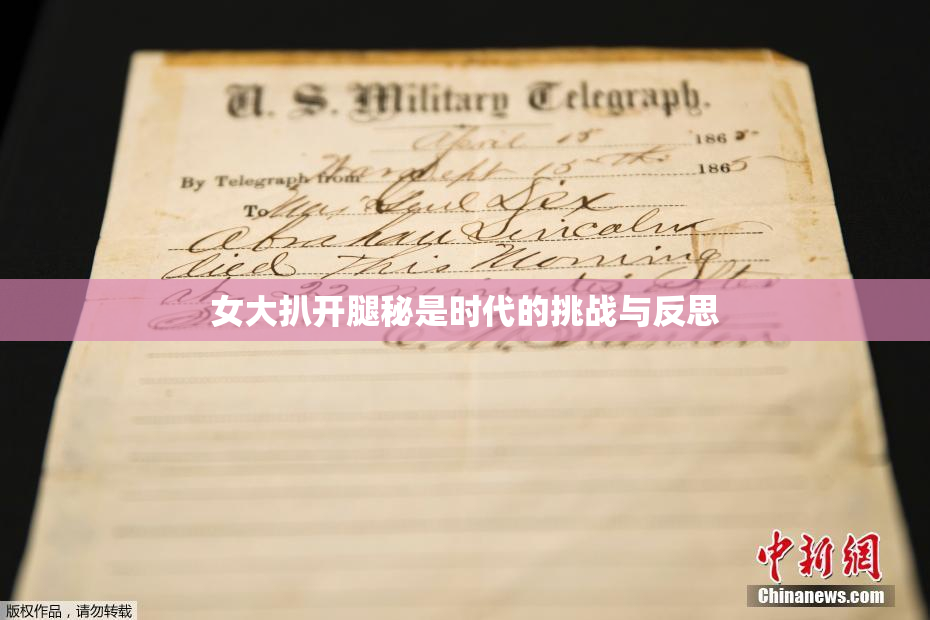 U. S. Military Telegraph.
April 15 1865
By Telegraph from War Dept 15th 1865
To Maj Genl Dix
Abraham Lincoln
died This Morning
at 22 minutes after
女大扒开腿秘是时代的挑战与反思
E. M. Stanton
中新网
Chinanews.com
版权作品,请勿转载